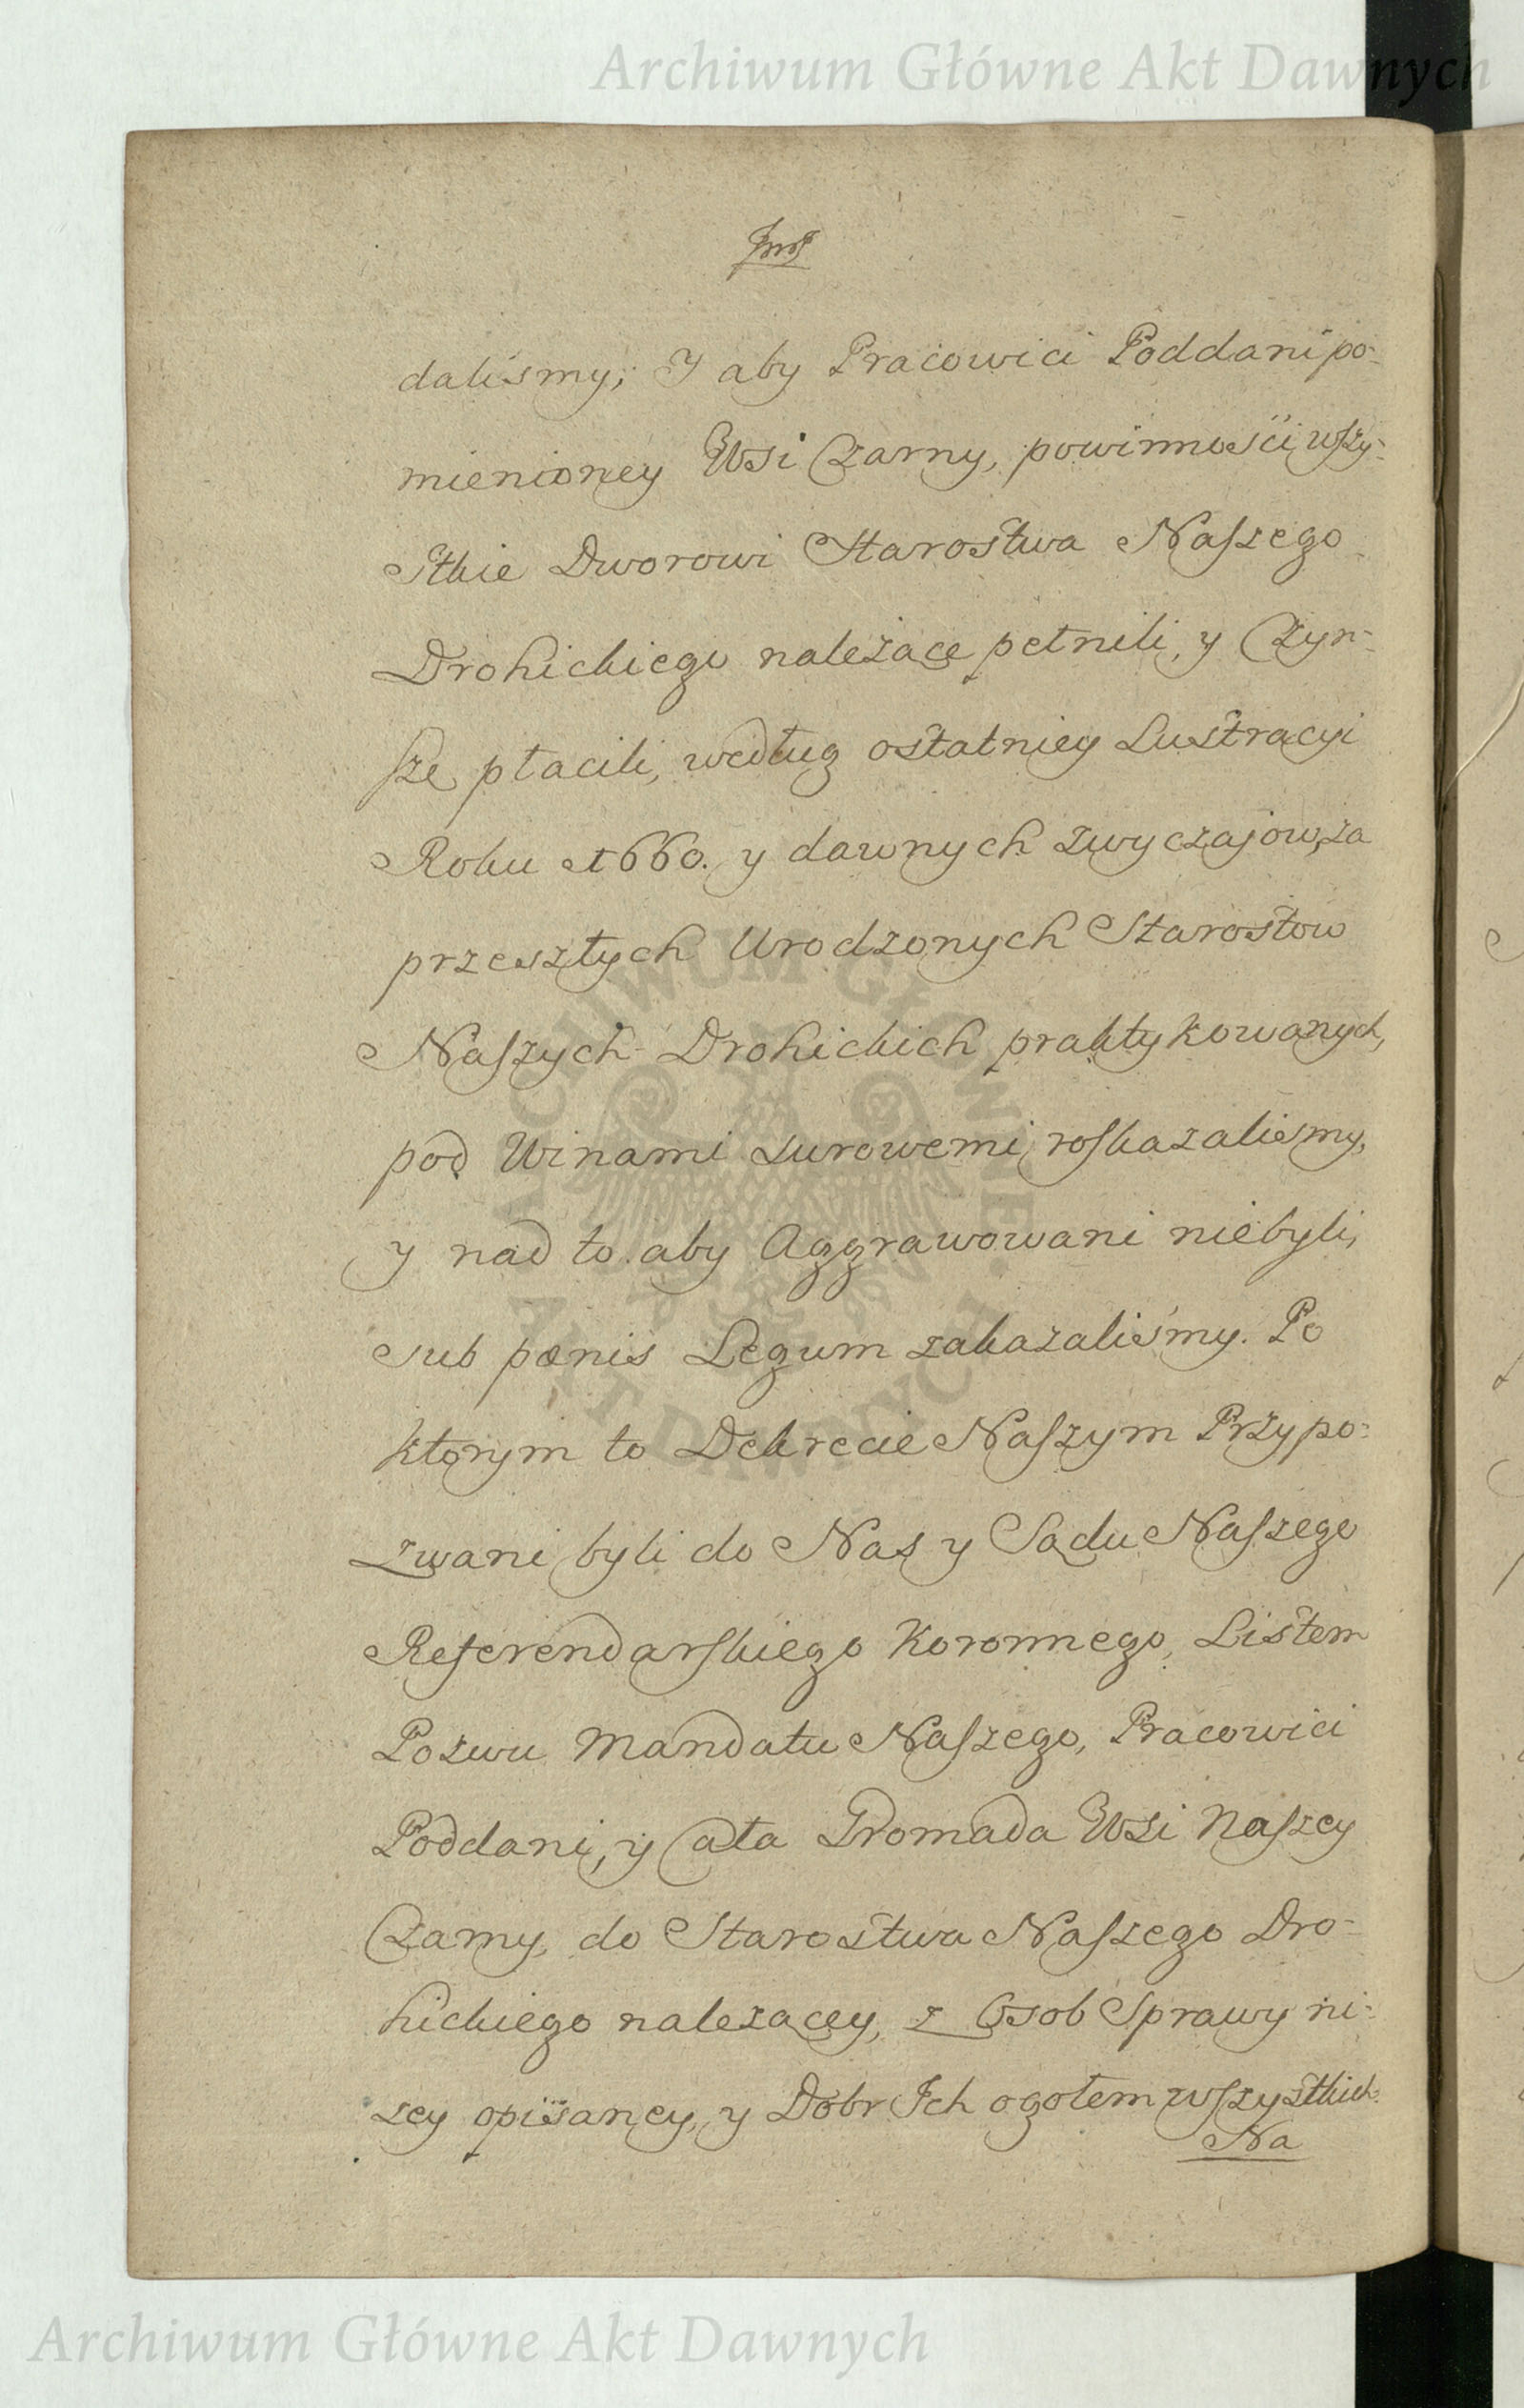 Archiwum Główne Akt Dawnych
daliśmy; Y aby Pracowici Poddani po-
mienioney Wsi Czarny, powinności wszy-
stkie Dworowi Starostwa Naszego
Drohickiego należące pełnili, y Czyn-
sze płacili, według ostatniey Lustracyi
Roku 1660. y dawnych zwyczajow, za
przeszłych Urodzonych Starostow
Naszych Drohickich praktykowanych,
pod Winami surowemi roskazaliśmy,
y nad to aby Aggrawowani niebyli,
sub pœnis Legum zakazaliśmy. Po
ktorym to Dekrecie Naszym Przypo-
zwani byli do Nas y Sądu Naszego
Referendarskiego Koronnego, Listem
Pozwu Mandatu Naszego, Pracowici
Poddani, y Cała Gromada Wsi Naszey
Czarny, do Starostwa Naszego Dro-
hickiego należącey, z Osob Sprawy ni-
zey opisaney, y Dobr Ich ogołem wszystkich
Na
ARCHIWUM GŁÓWNE
AKT DAWNYCH
Archiwum Główne Akt Dawnych